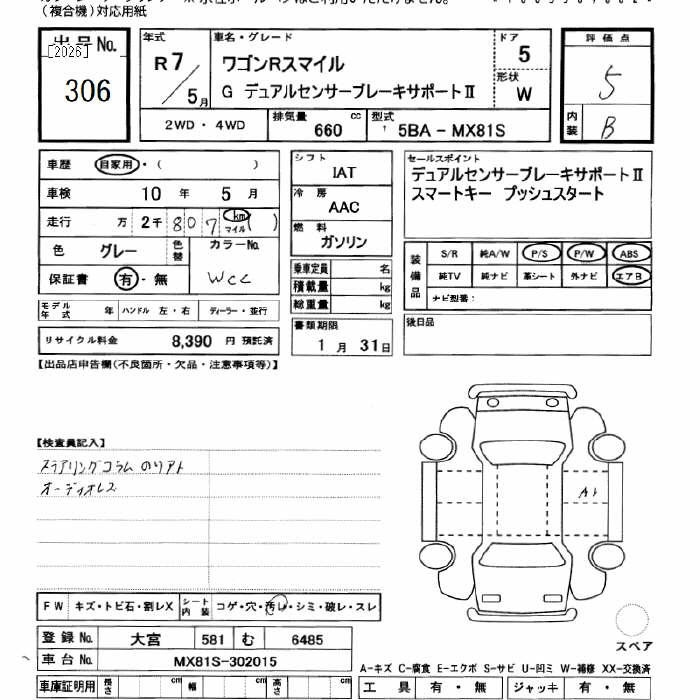 (複合機)対応用紙
出品No.
[2026]
306
年式
R7/5月
車名・グレード
ワゴンRスマイル
G デュアルセンサーブレーキサポートⅡ
ドア
5
形状
W
評価点
5
内装
B
2WD・4WD
排気量 660 cc
型式 5BA-MX81S
車歴 自家用・( )
車検 10年 5月
走行 万 2千807 km マイル ( )
色 グレー 色替
カラーNo.
WCC
保証書 有・無
モデル年式 年 ハンドル 左・右 ディーラー・並行
リサイクル料金 8,390 円 預託済
シフト
IAT
冷房
AAC
燃料
ガソリン
乗車定員 名
積載量 kg
総重量 kg
書類期限
1月31日
セールスポイント
デュアルセンサーブレーキサポートⅡ
スマートキー プッシュスタート
装備品
S/R 純A/W P/S P/W ABS
純TV 純ナビ 革シート 外ナビ エアB
ナビ型番:
後日品
【出品店申告欄(不良箇所・欠品・注意事項等)】
【検査員記入】
ステアリングコラムのリアト
オーディオレス
A1
FW キズ・トビ石・割レX
シート内装 コゲ・穴・汚レ・シミ・破レ・スレ
登録No. 大宮 581 む 6485
車台No. MX81S-302015
車庫証明用 長さ cm 幅 cm 高さ cm
スペア
A-キズ C-腐食 E-エクボ S-サビ U-凹ミ W-補修 XX-交換済
工具 有・無 ジャッキ 有・無